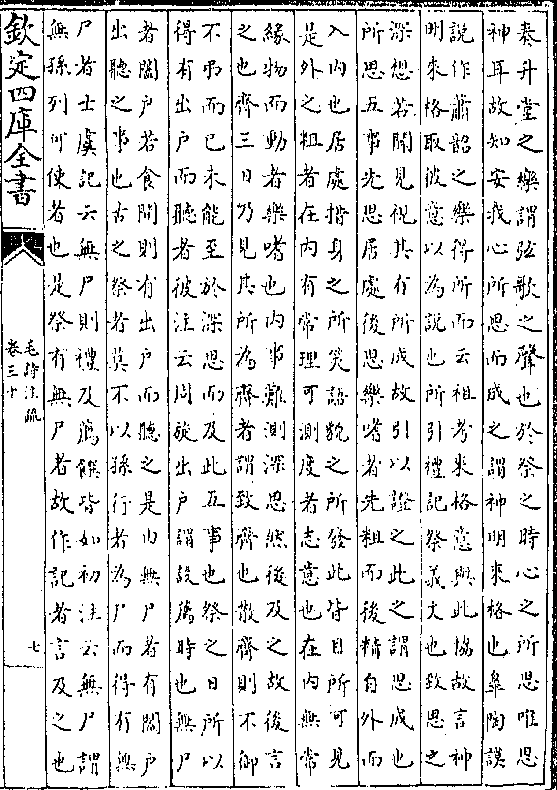 奏升堂之樂謂弦歌之聲也於祭之時心之所思唯思
神耳故知安我心所思而成之謂神明來格也臯陶謨
說作簫韶之樂得所而云祖考來格意與此協故言神
明來格取彼意以為說也所引禮記祭義文也致思之
深想若聞見視其有所成故引以證之此之謂思成也
所思五事先思居處後思樂嗜者先粗而後精自外而
入內也居處措身之所笑語貌之所發此皆目所可見
是外之粗者在內有常理可測度者志意也在內無常
緣物而動者樂嗜也內事難測深思然後及之故後言
之也齊三日乃見其所為齊者謂致齊也散齊則不御
不弔而已未能至於深思而及此五事也祭之日所以
得有出戶而聽者彼注云周旋出戶謂設薦時也無尸
者闔戶若食間則有出戶而聽之是由無尸者有闔戶
出聽之事也古之祭者莫不以孫行者為尸而得有無
尸者士虞記云無尸則禮及薦饌皆如初注云無尸謂
無孫列可使者也是祭有無尸者故作記者言及之也
欽定四庫全書
毛詩注疏
卷三十
七